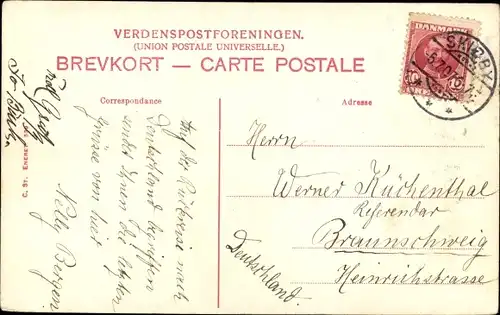 VERDENSPOSTFORENINGEN.
(UNION POSTALE UNIVERSELLE.)
BREVKORT — CARTE POSTALE
DANMARK
10
SKIBBY
Correspondance
Adresse
Auf der Rückreise nach
Deutschland begriffen
sendet Ihnen die letzten
Grüsse von hier
Nelly Bergen
Herrn
Werner Küchenthal
Referendar
Braunschweig
Heinrichstrasse
Deutschland.